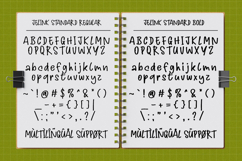 JELINK STANDARD REGULAR
ABCDEFGHIJKLM
NOPQRSTUVWXYZ
abcdefghijklm
nopqrstuvwxyz
~`!@#$%^&*()
_-+={}[]|
\:;"'<>,.?/
MULTILINGUAL SUPPORT
JELINK STANDARD BOLD
ABCDEFGHIJKLM
NOPQRSTUVWXYZ
abcdefghijklm
nopqrstuvwxyz
~`!@#$%^&*()
_-+={}[]|
\:;"'<>,.?/
MULTILINGUAL SUPPORT